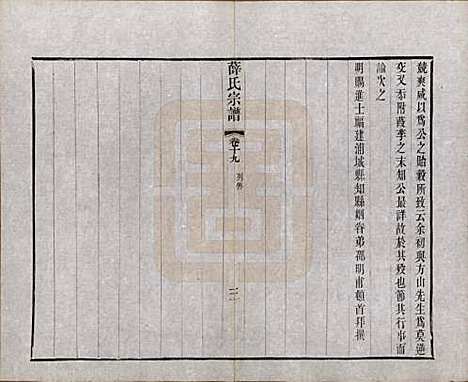 競爽咸以爲公之貽穀所致云余初與方山先生爲莫逆
交又忝附葭莩之末知公最詳故於其歿也節其行事而
論次之
明賜進士福建浦城縣知縣姻眷弟鄒明甫頓首拜撰
薛氏宗譜
卷十九
列傳